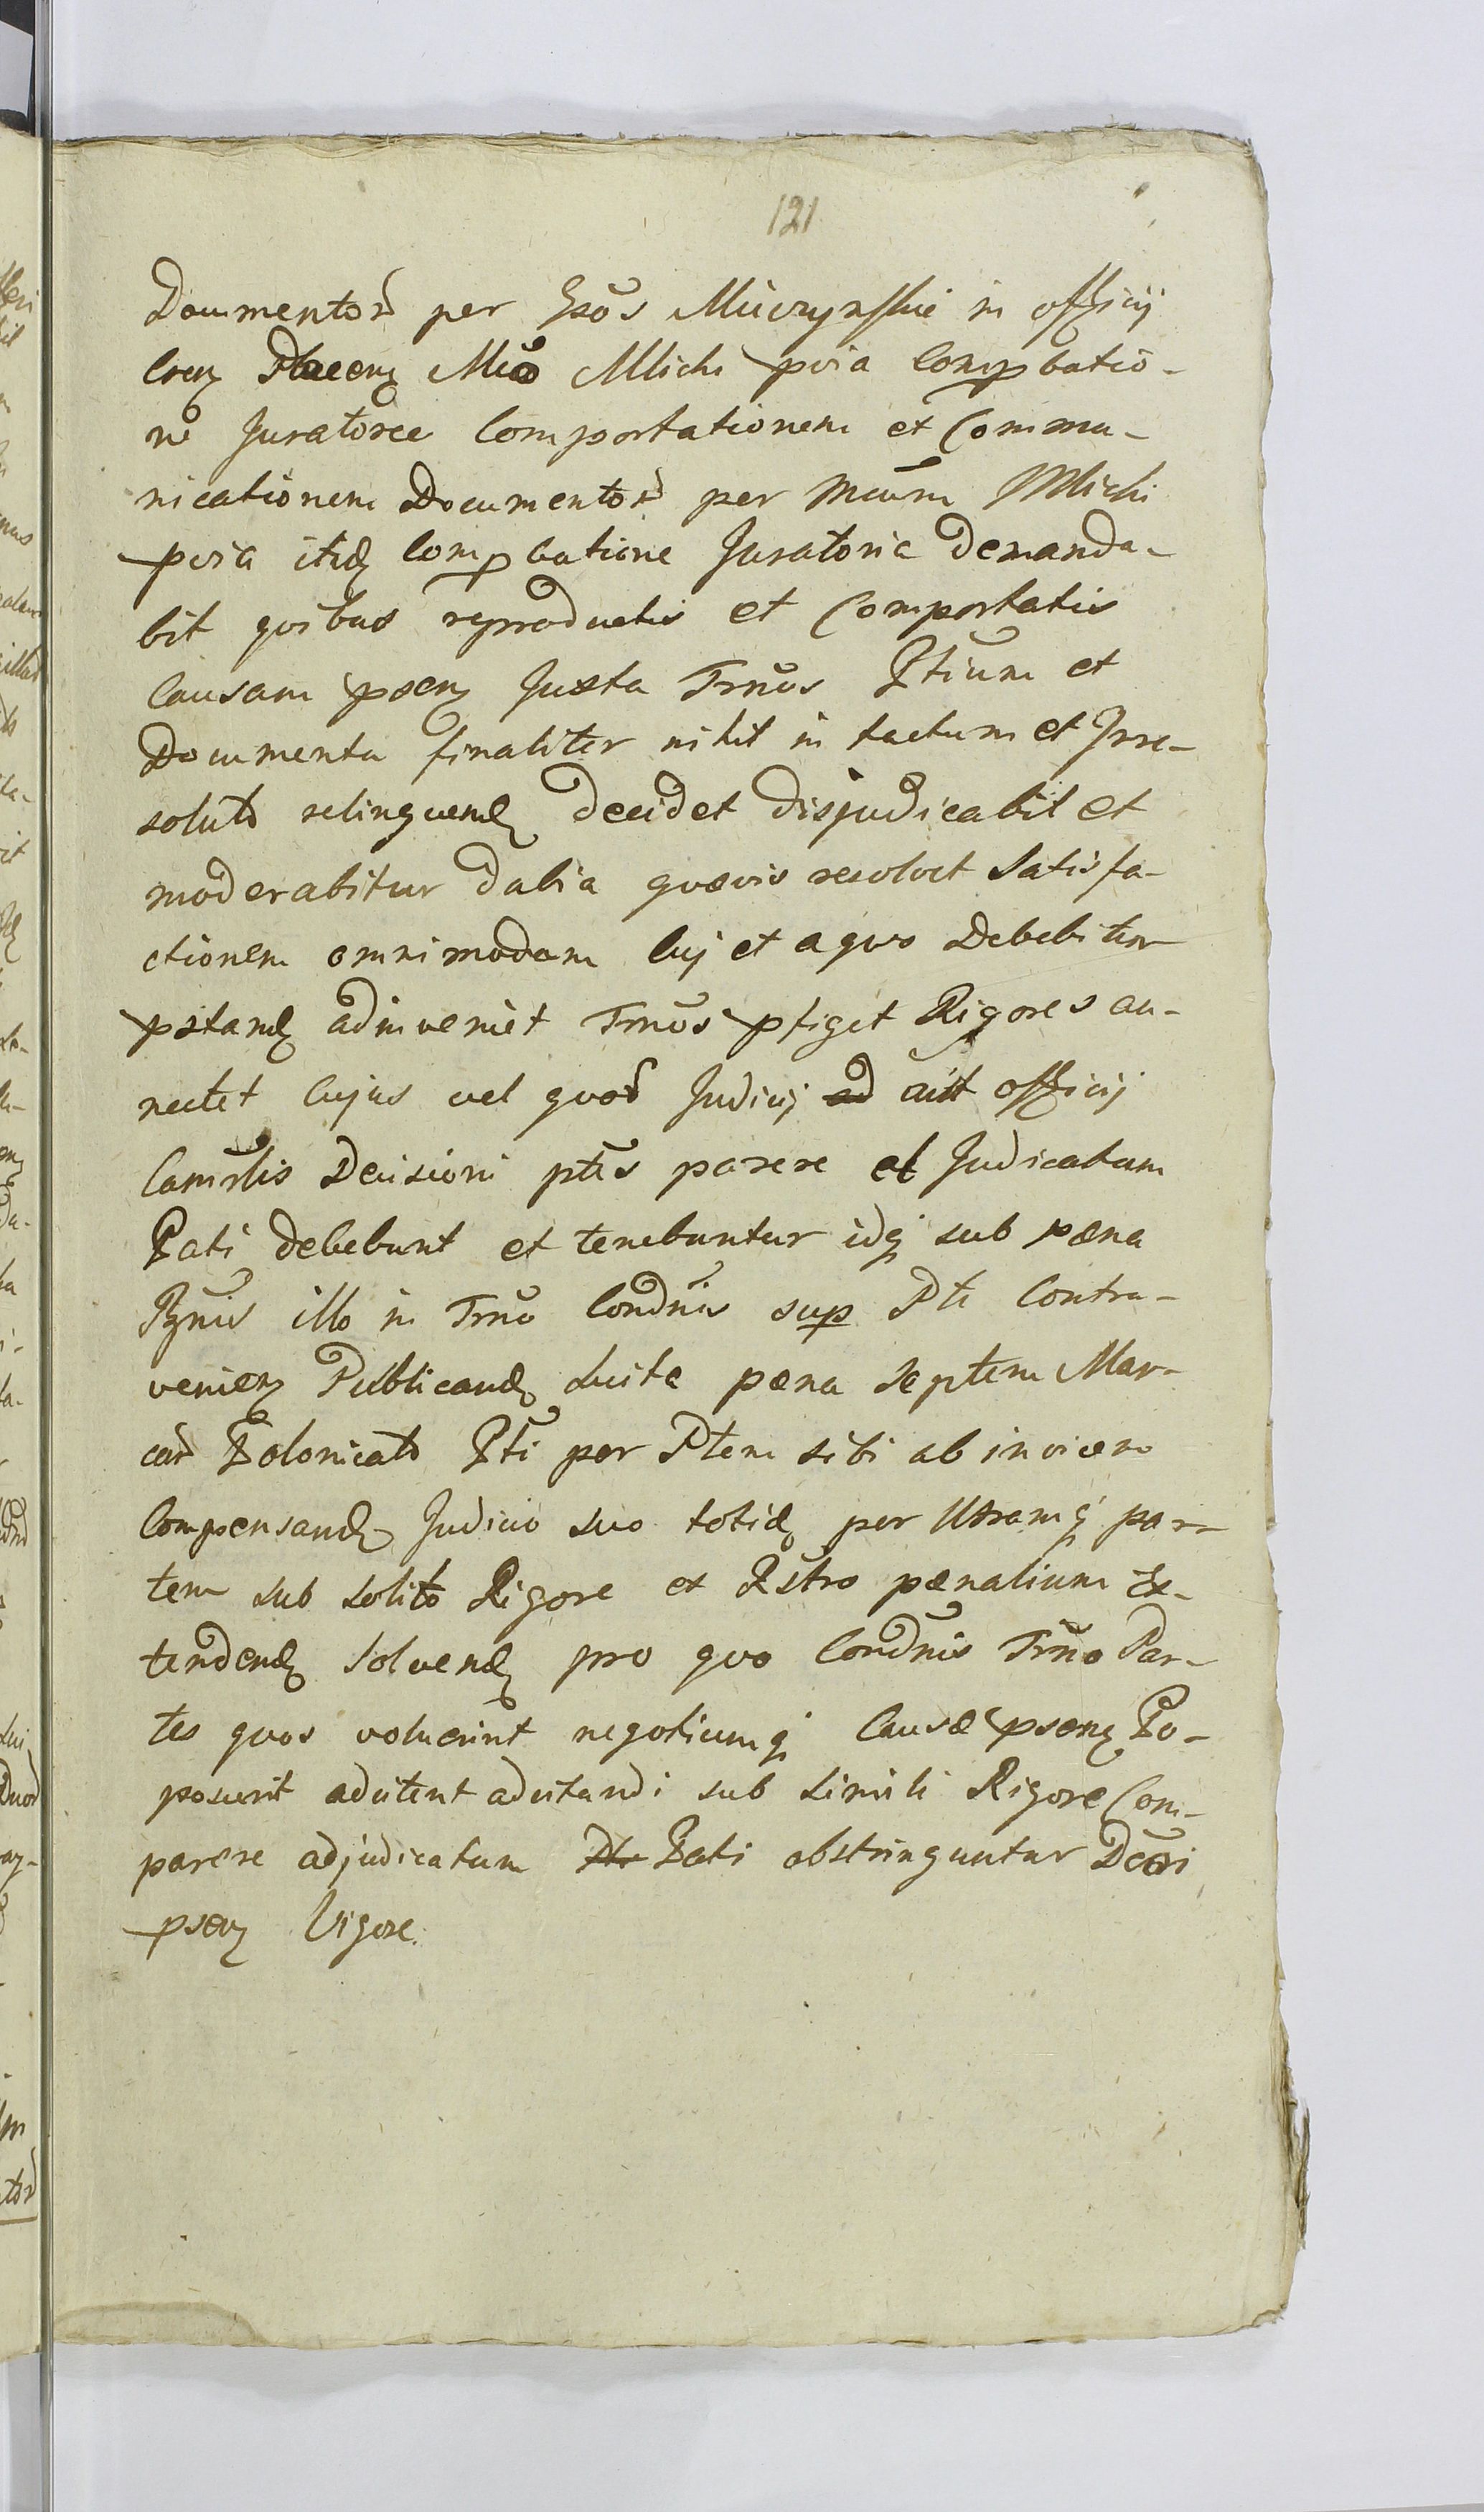 121
Documentor per Gsos Muczynskie in officij
Cren Placen Mico Mlicki pvia Comp batio-
ne Juratoree Comportationem et Commu-
nicationem Documentor per Mcum Mlicki
pvia itid comp batione Juratoria Demanda-
bit quibus reproductis et Comportatis
Causam psen Juxta Trnos Ptium et
Documenta finaliter nihil in tactum et Irre-
soluto relinquend decidet disjudicabit et
moderabitur dubia quævis resolvet Satisfa-
ctionem omnimodam cuj et a quo Debebitur
pstand adinveniet Trnos pfiget Rigores an-
nectet cujus vel quor Judicij ad aut officij
Camrlis Decisioni ptes parere et Judicatum
Pati debebunt et tenebuntur idq sub pæna
Pznis illo in Trno Condnis sup Pte Contra-
venien Publicand Luita pæna septem Mar-
car Polonicalo Pti per Ptem sibi ab invicem
Compensand Judicio suo totid per Utramq par-
tem sub solito Rigore ex Rstro pænalium Ex-
tendend solvend pro quo Condnis Trno Par-
tes quos voluerint negotiumq Causæ psen Po-
poscerit adcitent adcitandi sub simili Rigore Com-
parere adjudicatum Pte Pati obstringuntur Dcti
psen Vigore.